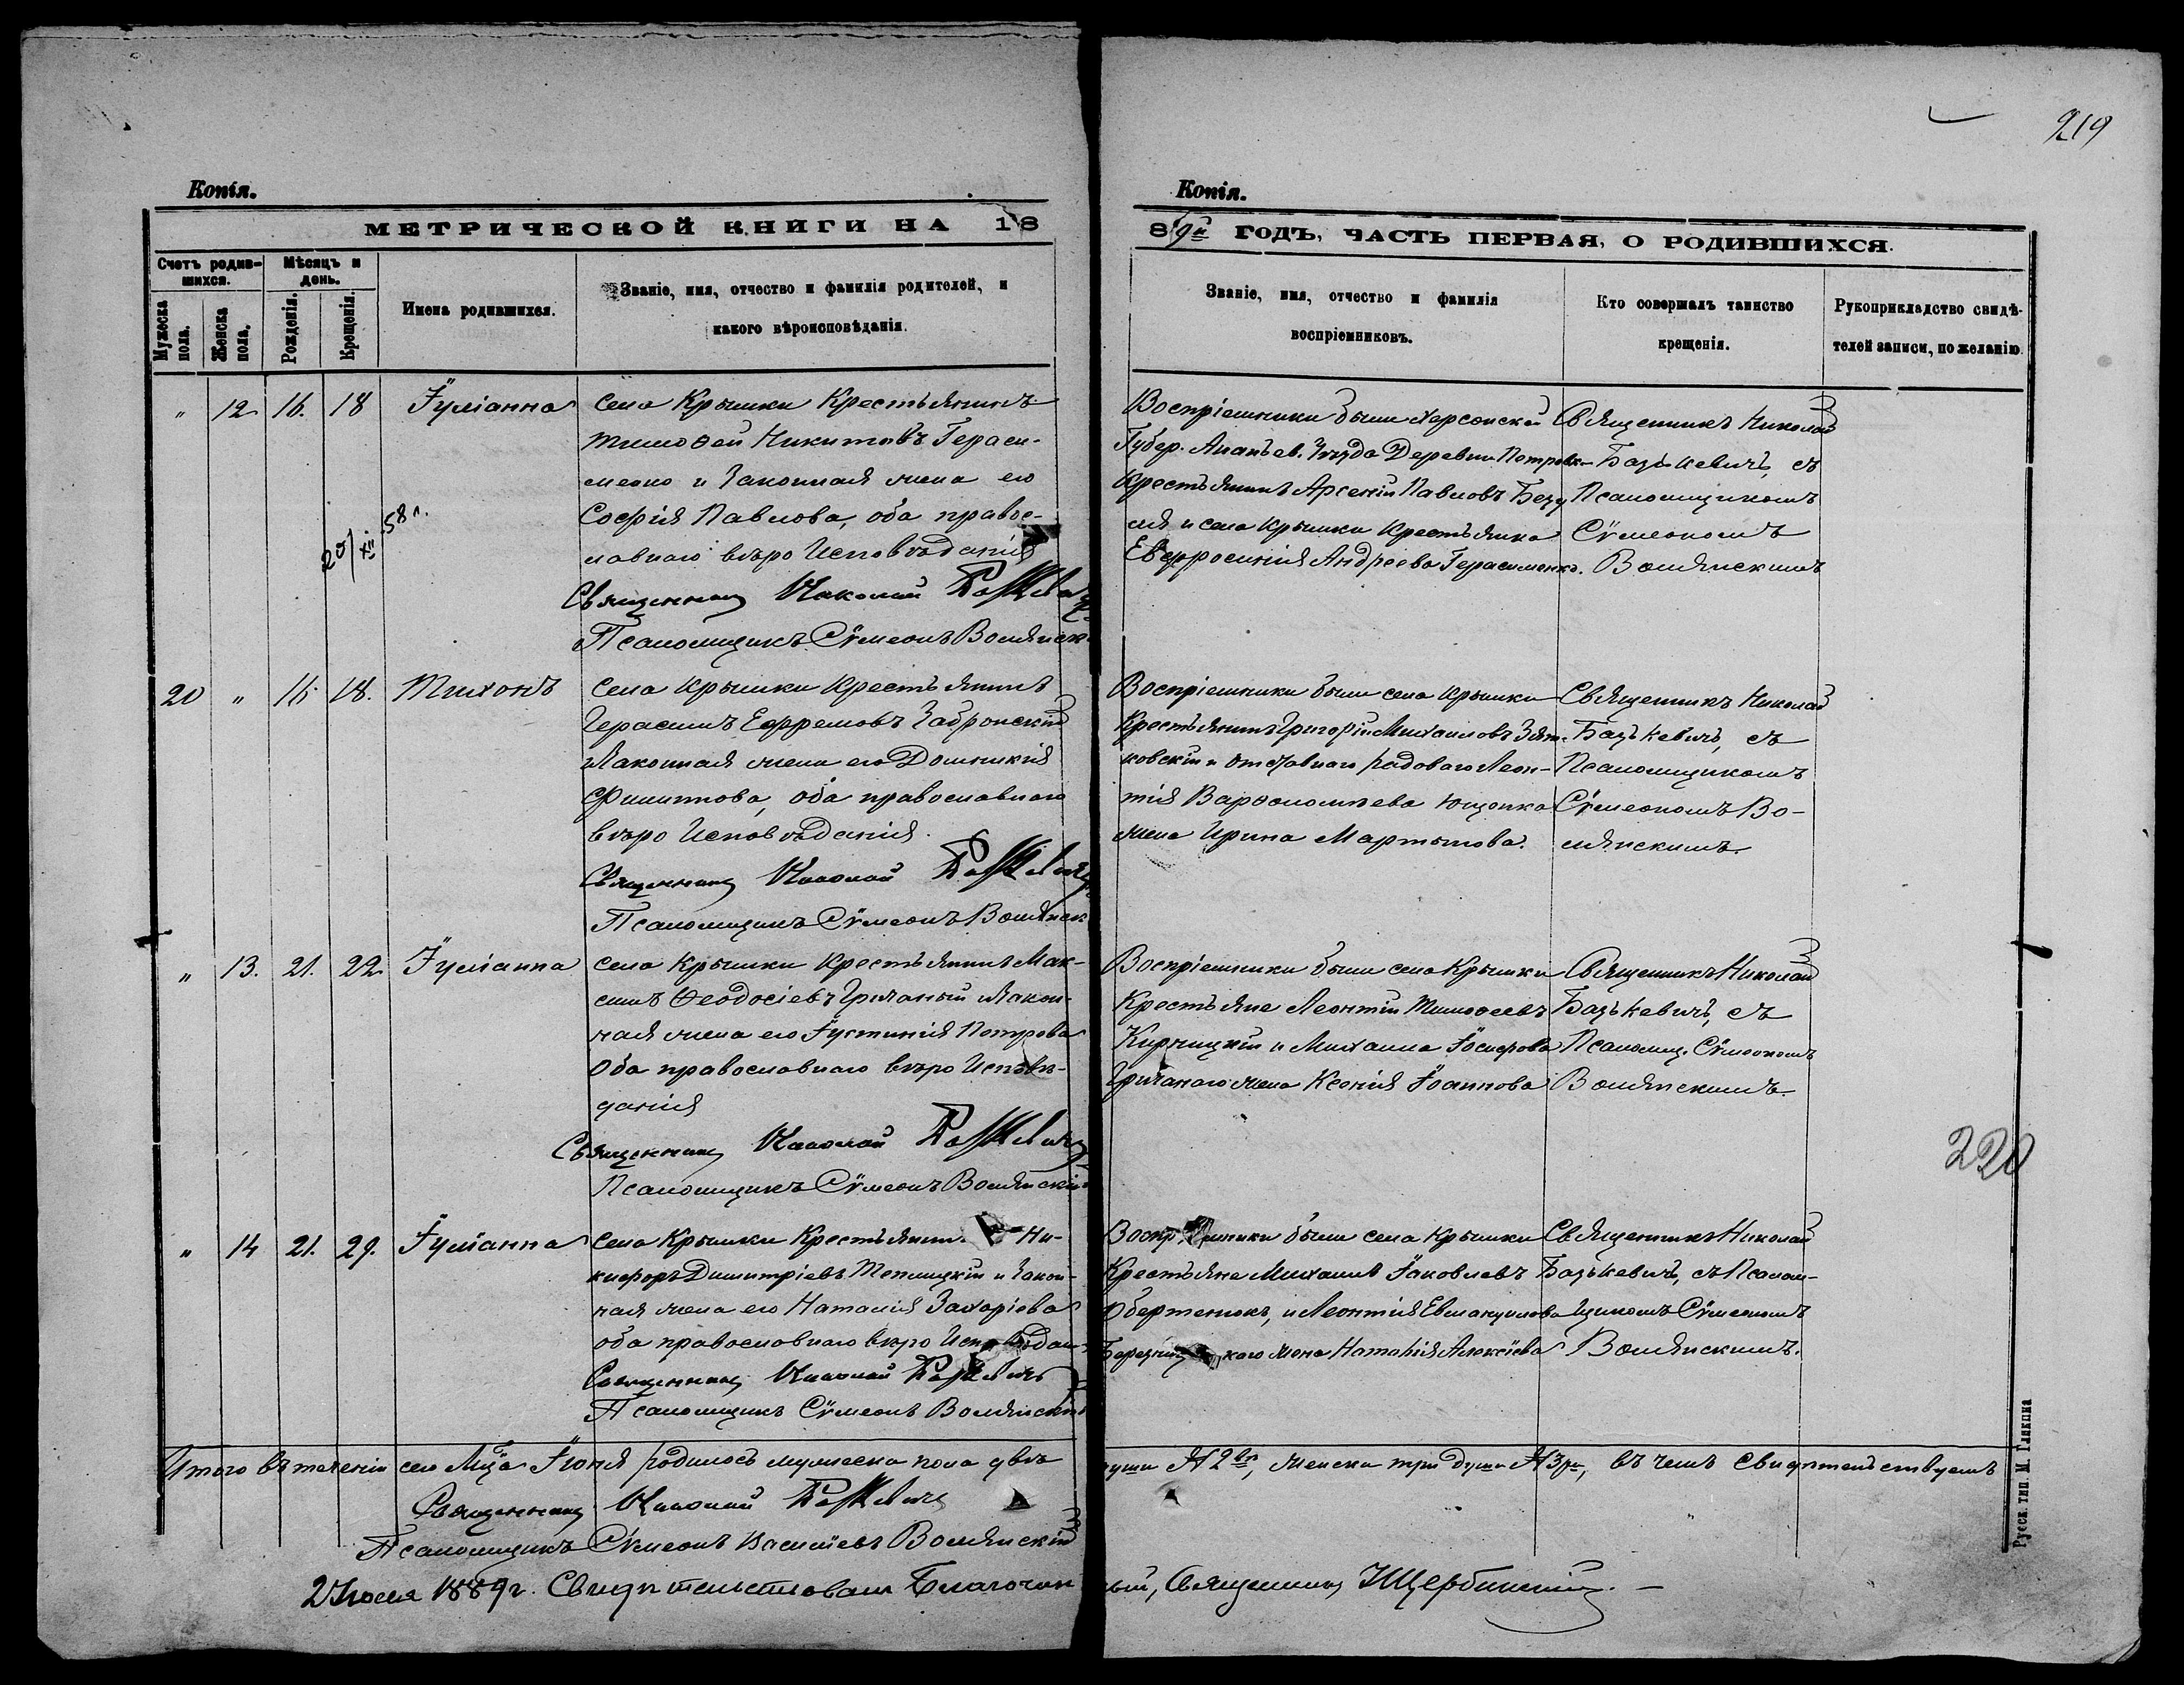 219
Копія.
Копія.
МЕТРИЧЕСКОЙ КНИГИ НА 18
89й ГОДЪ, ЧАСТЬ ПЕРВАЯ, О РОДИВШИХСЯ.
Счетъ родив-
шихся.
Мѣсяцъ и
день.
Мужеска
пола.
Женска
пола.
Рожденія.
Крещенія.
Имена родившихся.
Званіе, имя, отчество и фамилія родителей, и
какого вѣроисповѣданія.
Званіе, имя, отчество и фамилія
воспріемниковъ.
Кто совершалъ таинство
крещенія.
Рукоприкладство свидѣ-
телей записи, по желанію.
" 12 16. 18 Іуліанна
села Крымки Крестьянинъ
Тимоѳей Никитовъ Гераси-
менко и Законная жена его
Софія Павлова, оба правос-
лавнаго вѣро Исповѣданія
Священникъ Николай
Псаломщикъ Сѵмеонъ Волянск
58 л.
Воспріемники были херсонской
Губер. Ананьев. Уѣзда Деревни Петровк
Крестьянинъ Арсеній Павловъ
и села Крымки Крестьянка
Евфросинія Андреева Герасименко.
Священникъ Николай
Базькевичъ, съ
Псаломщикомъ
Сѵмеономъ
Волянскимъ
20 " 16 18. Тихонъ
села Крымки Крестьянинъ
Герасимъ Ефремовъ
Законная жена его Домникія
Филиппова, оба православнаго
вѣро Исповѣданія.
Священникъ Николай
Псаломщикъ Сѵмеонъ Волянск
Воспріемники были села Крымки
Крестьянинъ Григорій Михаиловъ Зят-
ковскій и отставнаго рядоваго Леон-
тія Варѳоломѣева Ющенка
жена Ирина Мартынова.
Священникъ Николай
Базькевичъ, съ
Псаломщикомъ
Сѵмеономъ Во-
лянскимъ.
" 13. 21. 22. Іуліанна
села Крымки Крестьянинъ Мак-
симъ Ѳеодосіевъ Гречаный и Закон-
ная жена его Іустинія Петрова
Оба православнаго вѣро Исповѣ-
данія
Священникъ Николай
Псаломщикъ Сѵмеонъ Волянскій
Воспріемники были села Крымки
Крестьяне Леонтій Тимоѳеевъ
и Михаила Іосифова
Гречанаго жена Ксенія Іоаннова
Священникъ Николай
Базькевичъ, съ
Псаломщ. Сѵмеономъ
Волянскимъ.
220
" 14 21. 29. Іуліанна
села Крымки Крестьянин Ни-
кифоръ Димитріевъ Теплицкій и Закон-
ная жена его Наталія Захаріева
оба православнаго вѣро Исповѣдан
Священникъ Николай
Псаломщикъ Сѵмеонъ Волянскій
Воспріемники были села Крымки
Крестьяне Михаилъ Іаковлевъ
Обертенюкъ, и Леонтія Евлампіова
жена Наталія Алексіева
Священникъ Николай
Базькевичъ, съ Псалом-
щикомъ Сѵмеономъ
Волянскимъ.
Итого въ теченіи сего Мца Іюня родилось мужеска пола двѣ
души №2вѣ, женска три души №3ри, въ чемъ Свидѣтельствуемъ
Священникъ Николай
Псаломщикъ Сѵмеонъ Василіевъ Волянскій
2 Іюля 1889г. Свидѣтельствовалъ Благочин
ный, Священникъ І Щербинскій.
Русск. тип. М. Гликина